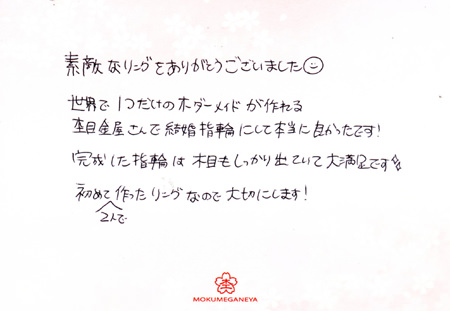 素敵なリングをありがとうございました
世界で1つだけのオーダーメイドが作れる
杢目金屋さんで結婚指輪にして本当に良かったです!
完成した指輪は木目もしっかり出ていて大満足です
初めて2人で作ったリングなので大切にします!
MOKUMEGANEYA